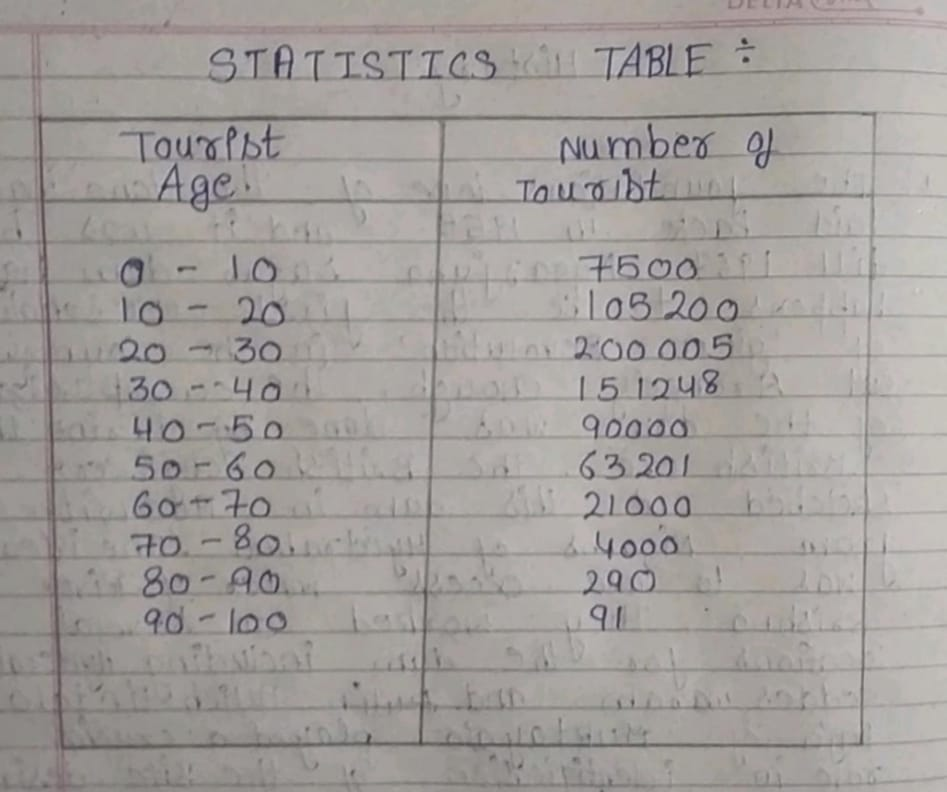 STATISTICS TABLE ÷
Tourist Number of
Age Tourist
0 - 10 7500
10 - 20 105200
20 - 30 200005
30 - 40 151248
40 - 50 90000
50 - 60 63201
60 - 70 21000
70 - 80 4000
80 - 90 290
90 - 100 91